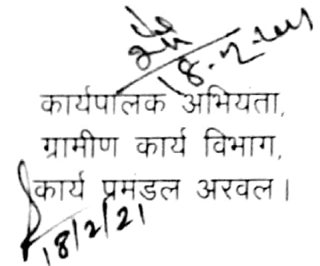 18.2.2021
कार्यपालक अभियता,
ग्रामीण कार्य विभाग,
कार्य प्रमडल अरवल।
18/2/21